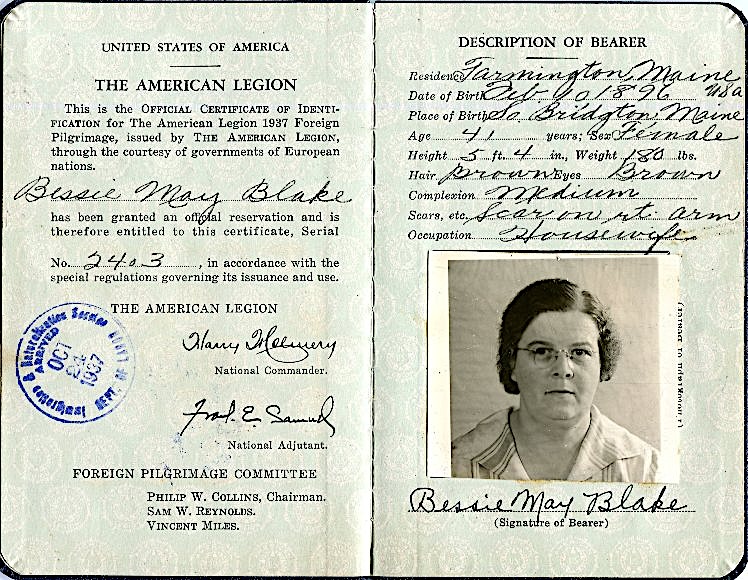 UNITED STATES OF AMERICA
THE AMERICAN LEGION
This is the OFFICIAL CERTIFICATE OF IDENTI-
FICATION for The American Legion 1937 Foreign
Pilgrimage, issued by THE AMERICAN LEGION,
through the courtesy of governments of European
nations.
Bessie May Blake
has been granted an official reservation and is
therefore entitled to this certificate, Serial
No. 2403, in accordance with the
special regulations governing its issuance and use.
THE AMERICAN LEGION
Harry Colmery
National Commander.
Frank E. Samuel
National Adjutant.
FOREIGN PILGRIMAGE COMMITTEE
PHILIP W. COLLINS, Chairman.
SAM W. REYNOLDS.
VINCENT MILES.
Immigration & Naturalization Service
ARRIVED
OCT
1937
DESCRIPTION OF BEARER
Residence Farmington, Maine
Date of Birth Feb. 10 1896 USa
Place of Birth So Bridgton, Maine
Age 41 years; Sex Female
Height 5 ft. 4 in., Weight 180 lbs.
Hair Brown Eyes Brown
Complexion Medium
Scars, etc. Scar on rt. arm
Occupation Housewife
Bessie May Blake
(Signature of Bearer)